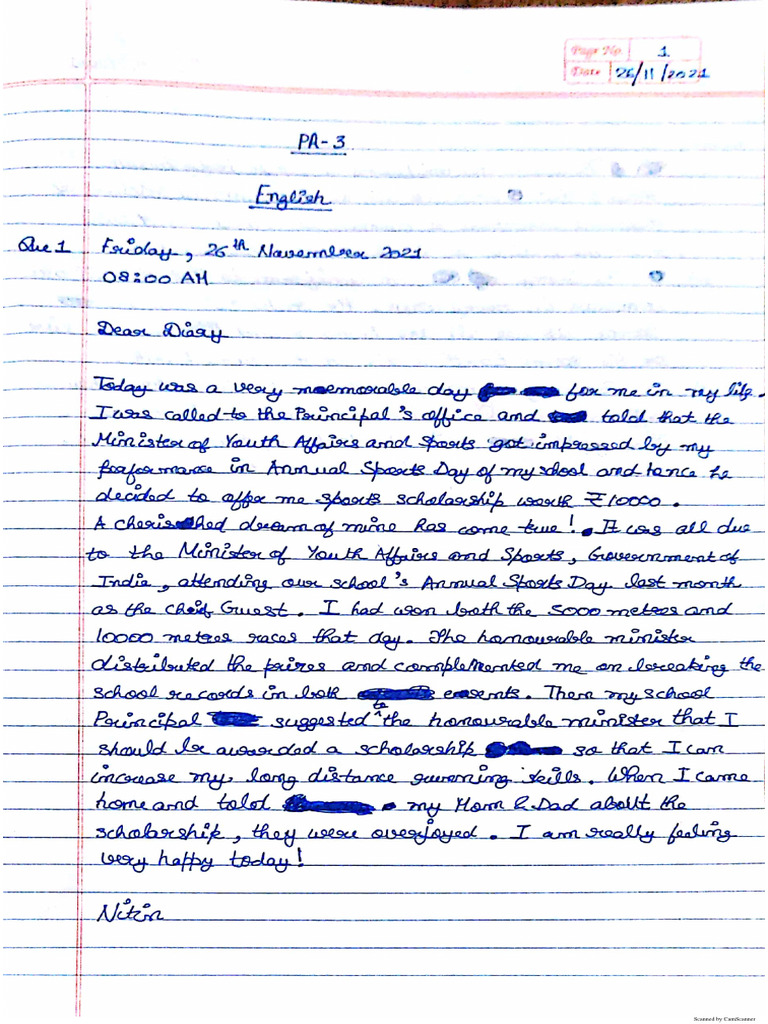 Page No. 1
Date 26/11/2021
PA-3
English
Que 1 Friday, 26th November 2021
08:00 AM
Dear Diary
Today was a very memorable day for me in my life.
I was called to the Principal's office and told that the
Minister of Youth Affairs and Sports got impressed by my
performance in Annual Sports Day of my school and hence he
decided to offer me sports scholarship worth ₹10000.
A cherished dream of mine has come true! It was all due
to the Minister of Youth Affairs and Sports, Government of
India, attending our school's Annual Sports Day last month
as the Chief Guest. I had won both the 5000 meters and
10000 metres races that day. The honourable minister
distributed the prizes and complemented me on breaking the
school records in both events. Then my school
Principal suggested to the honourable minister that I
should be awarded a scholarship so that I can
increase my long distance running skills. When I came
home and told my Mom & Dad about the
scholarship, they were overjoyed. I am really feeling
very happy today!
Nitin
Scanned by CamScanner